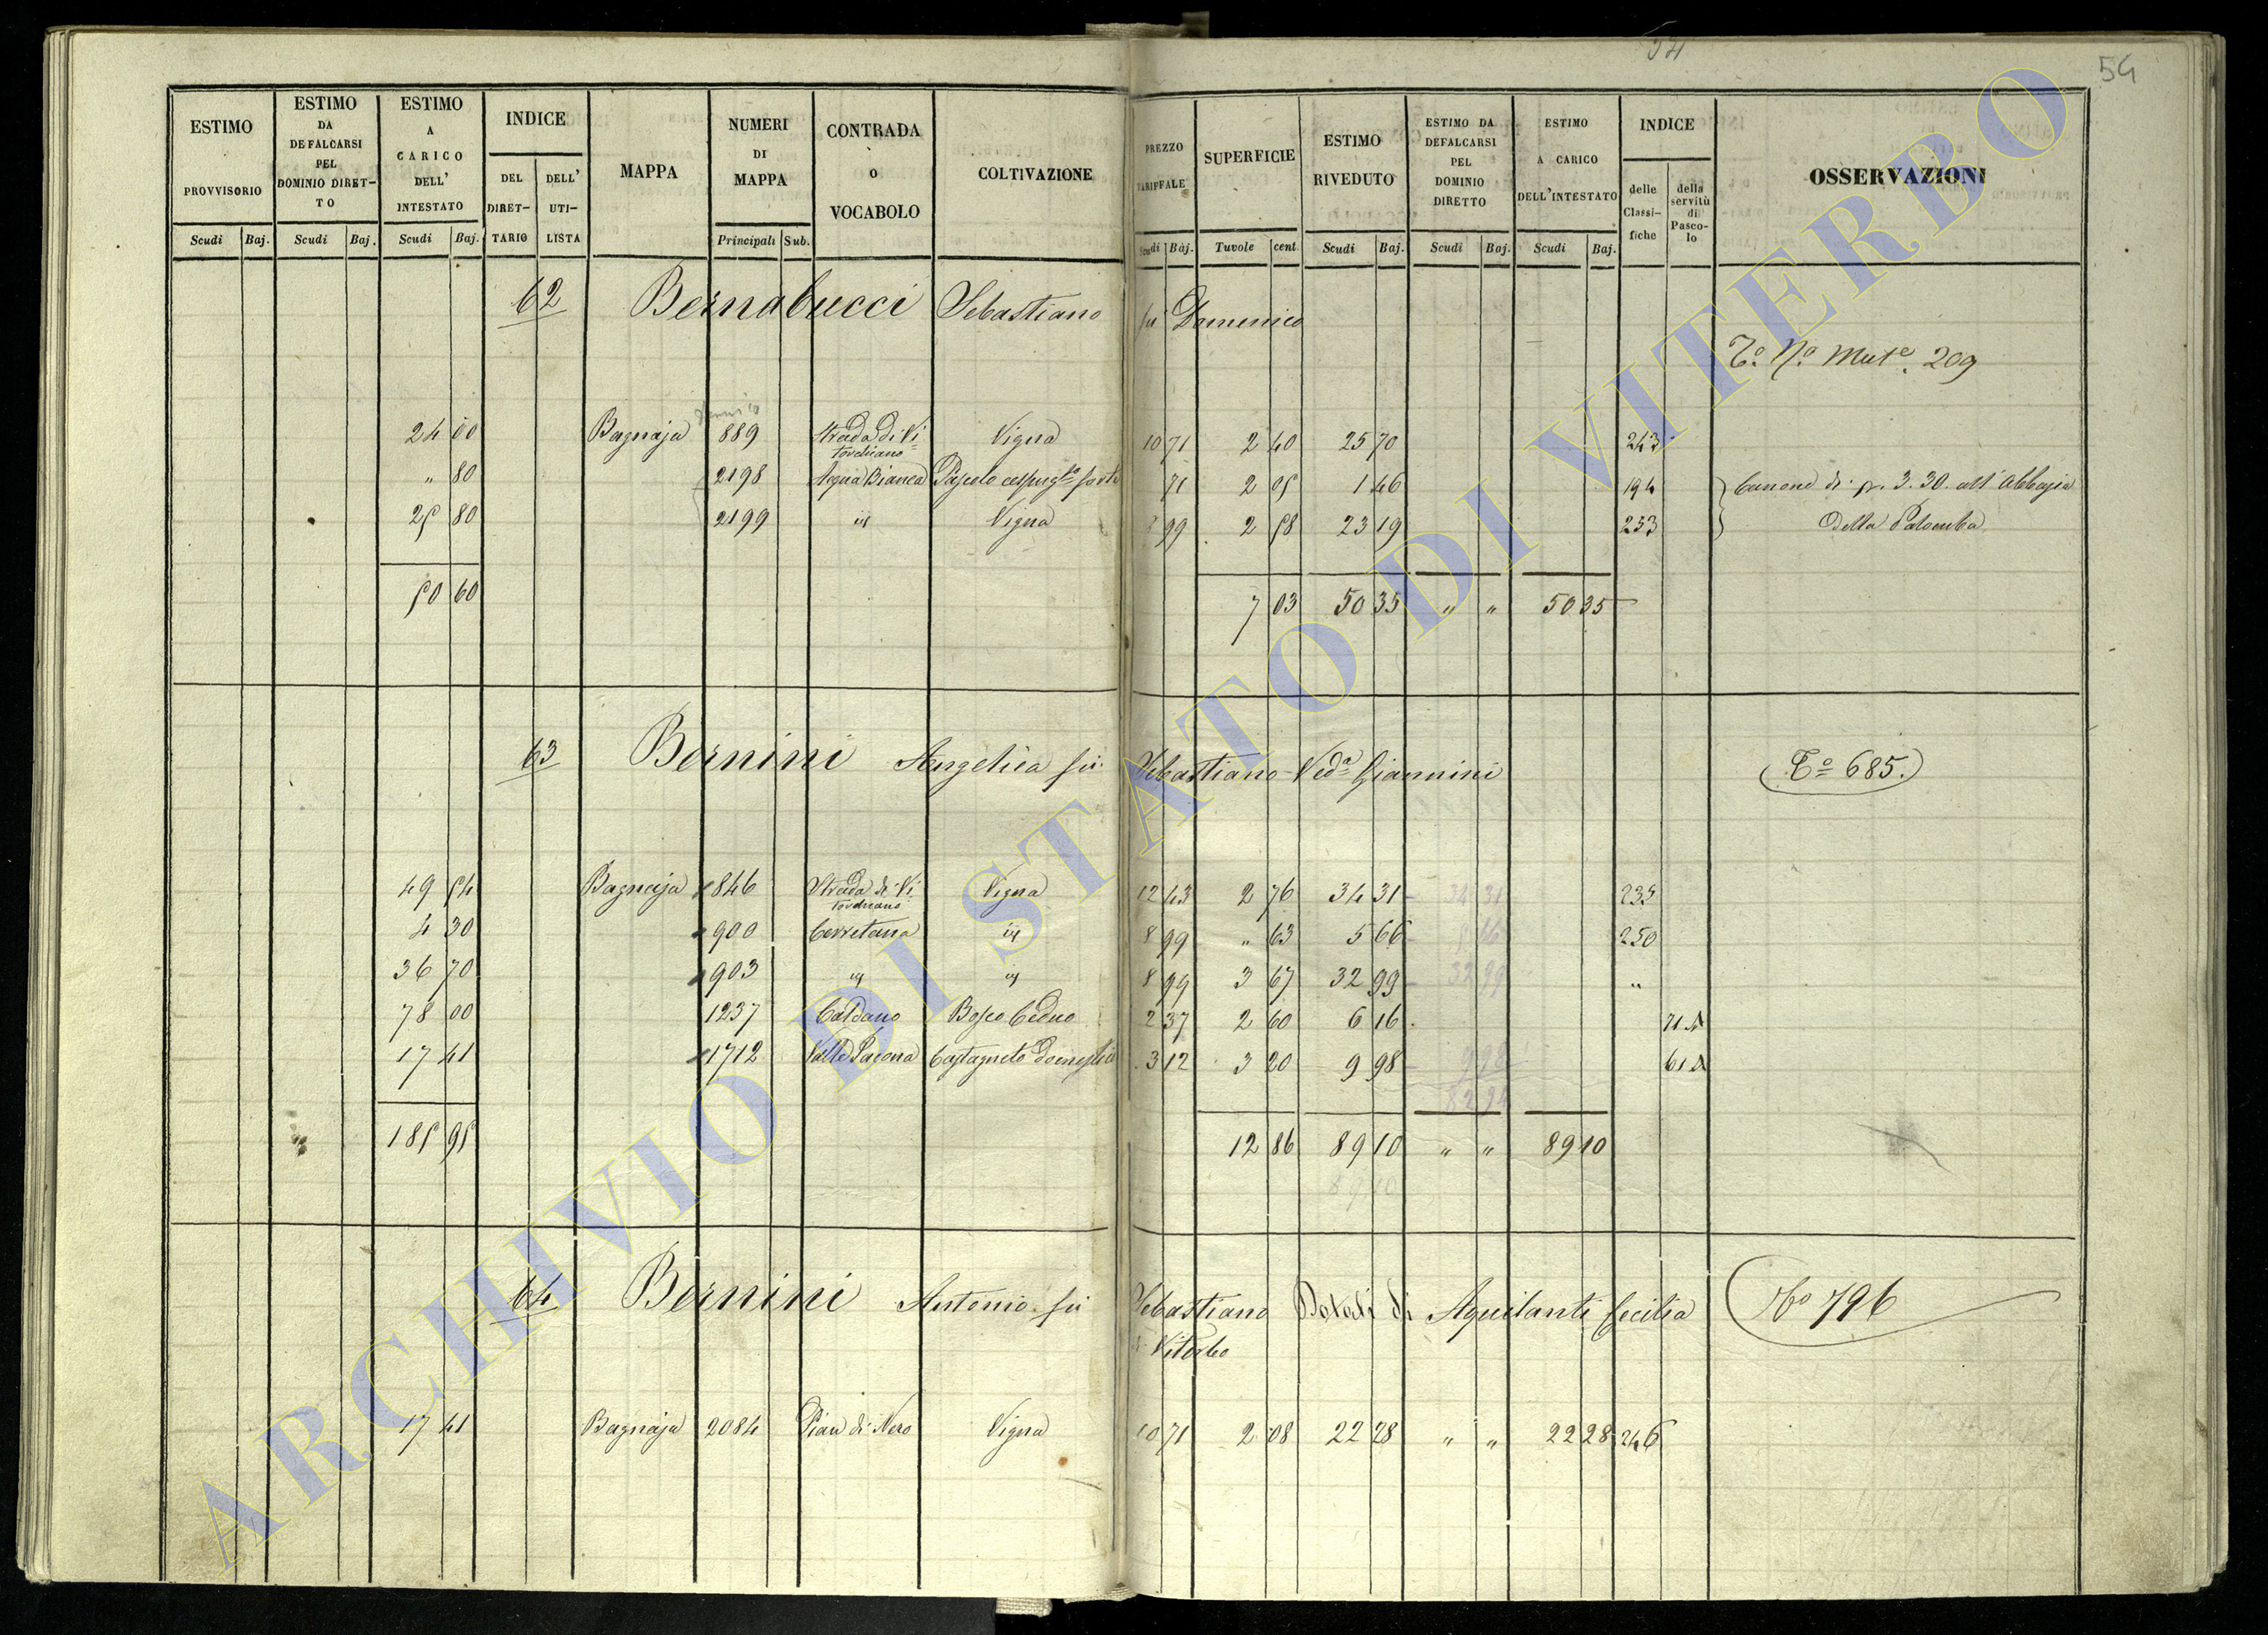 54
54
ESTIMO PROVVISORIO
ESTIMO DA DEFALCARSI PEL DOMINIO DIRET-TO
ESTIMO A CARICO DELL' INTESTATO
INDICE
DEL DIRET-TARIO
DELL' UTI-LISTA
MAPPA
NUMERI DI MAPPA
CONTRADA O VOCABOLO
COLTIVAZIONE
PREZZO TARIFFALE
SUPERFICIE
ESTIMO RIVEDUTO
ESTIMO DA DEFALCARSI PEL DOMINIO DIRETTO
ESTIMO A CARICO DELL'INTESTATO
INDICE
delle Classi-fiche
della servitù di Pasco-lo
OSSERVAZIONI
Scudi Baj. Scudi Baj. Scudi Baj. Principali Sub. Scudi Baj. Tavole cent. Scudi Baj. Scudi Baj. Scudi Baj.
62 Bernabucci Sebastiano fu Domenico
Tº Nº Mutº. 209
24 00 Bagnaja 889 Strada di Vi= Vigna 10 71 2 40 25 70 243
torchiano
" 80 2198 Acqua Bianca Pascolo cespugto forte 71 2 05 1 46 194 Canone di p. 3. 30. all'Abbazia
25 80 2199 id Vigna 8 99 2 58 23 19 253 della Palomba
50 60 7 03 50 35 " " 50 35
63 Bernini Angelica fu Sebastiano Veda Giannini
(Tº 685.)
49 54 Bagnaja 846 Strada di Vi= Vigna 12 43 2 76 34 31 34 31 235
torchiano
4 30 900 Cerretana id 8 99 " 63 5 66 250
36 70 903 id id 8 99 3 67 32 99 32 99 "
78 00 1237 Caldano Bosco Ceduo 2 37 2 60 6 16 71 A
17 41 1712 Valle Pacona Castagneto domestico 3 12 3 20 9 98 9 98 61 A
" 185 95 12 86 89 10 " " 89 10
89 10
64 Bernini Antonio fu Sebastiano Dotali di Aquilanti Cecilia
Nº 796
Viterbo
17 41 Bagnaja 2084 Pian di Nero Vigna 10 71 2 08 22 28 " " 22 28 246
ARCHIVIO DI STATO DI VITERBO